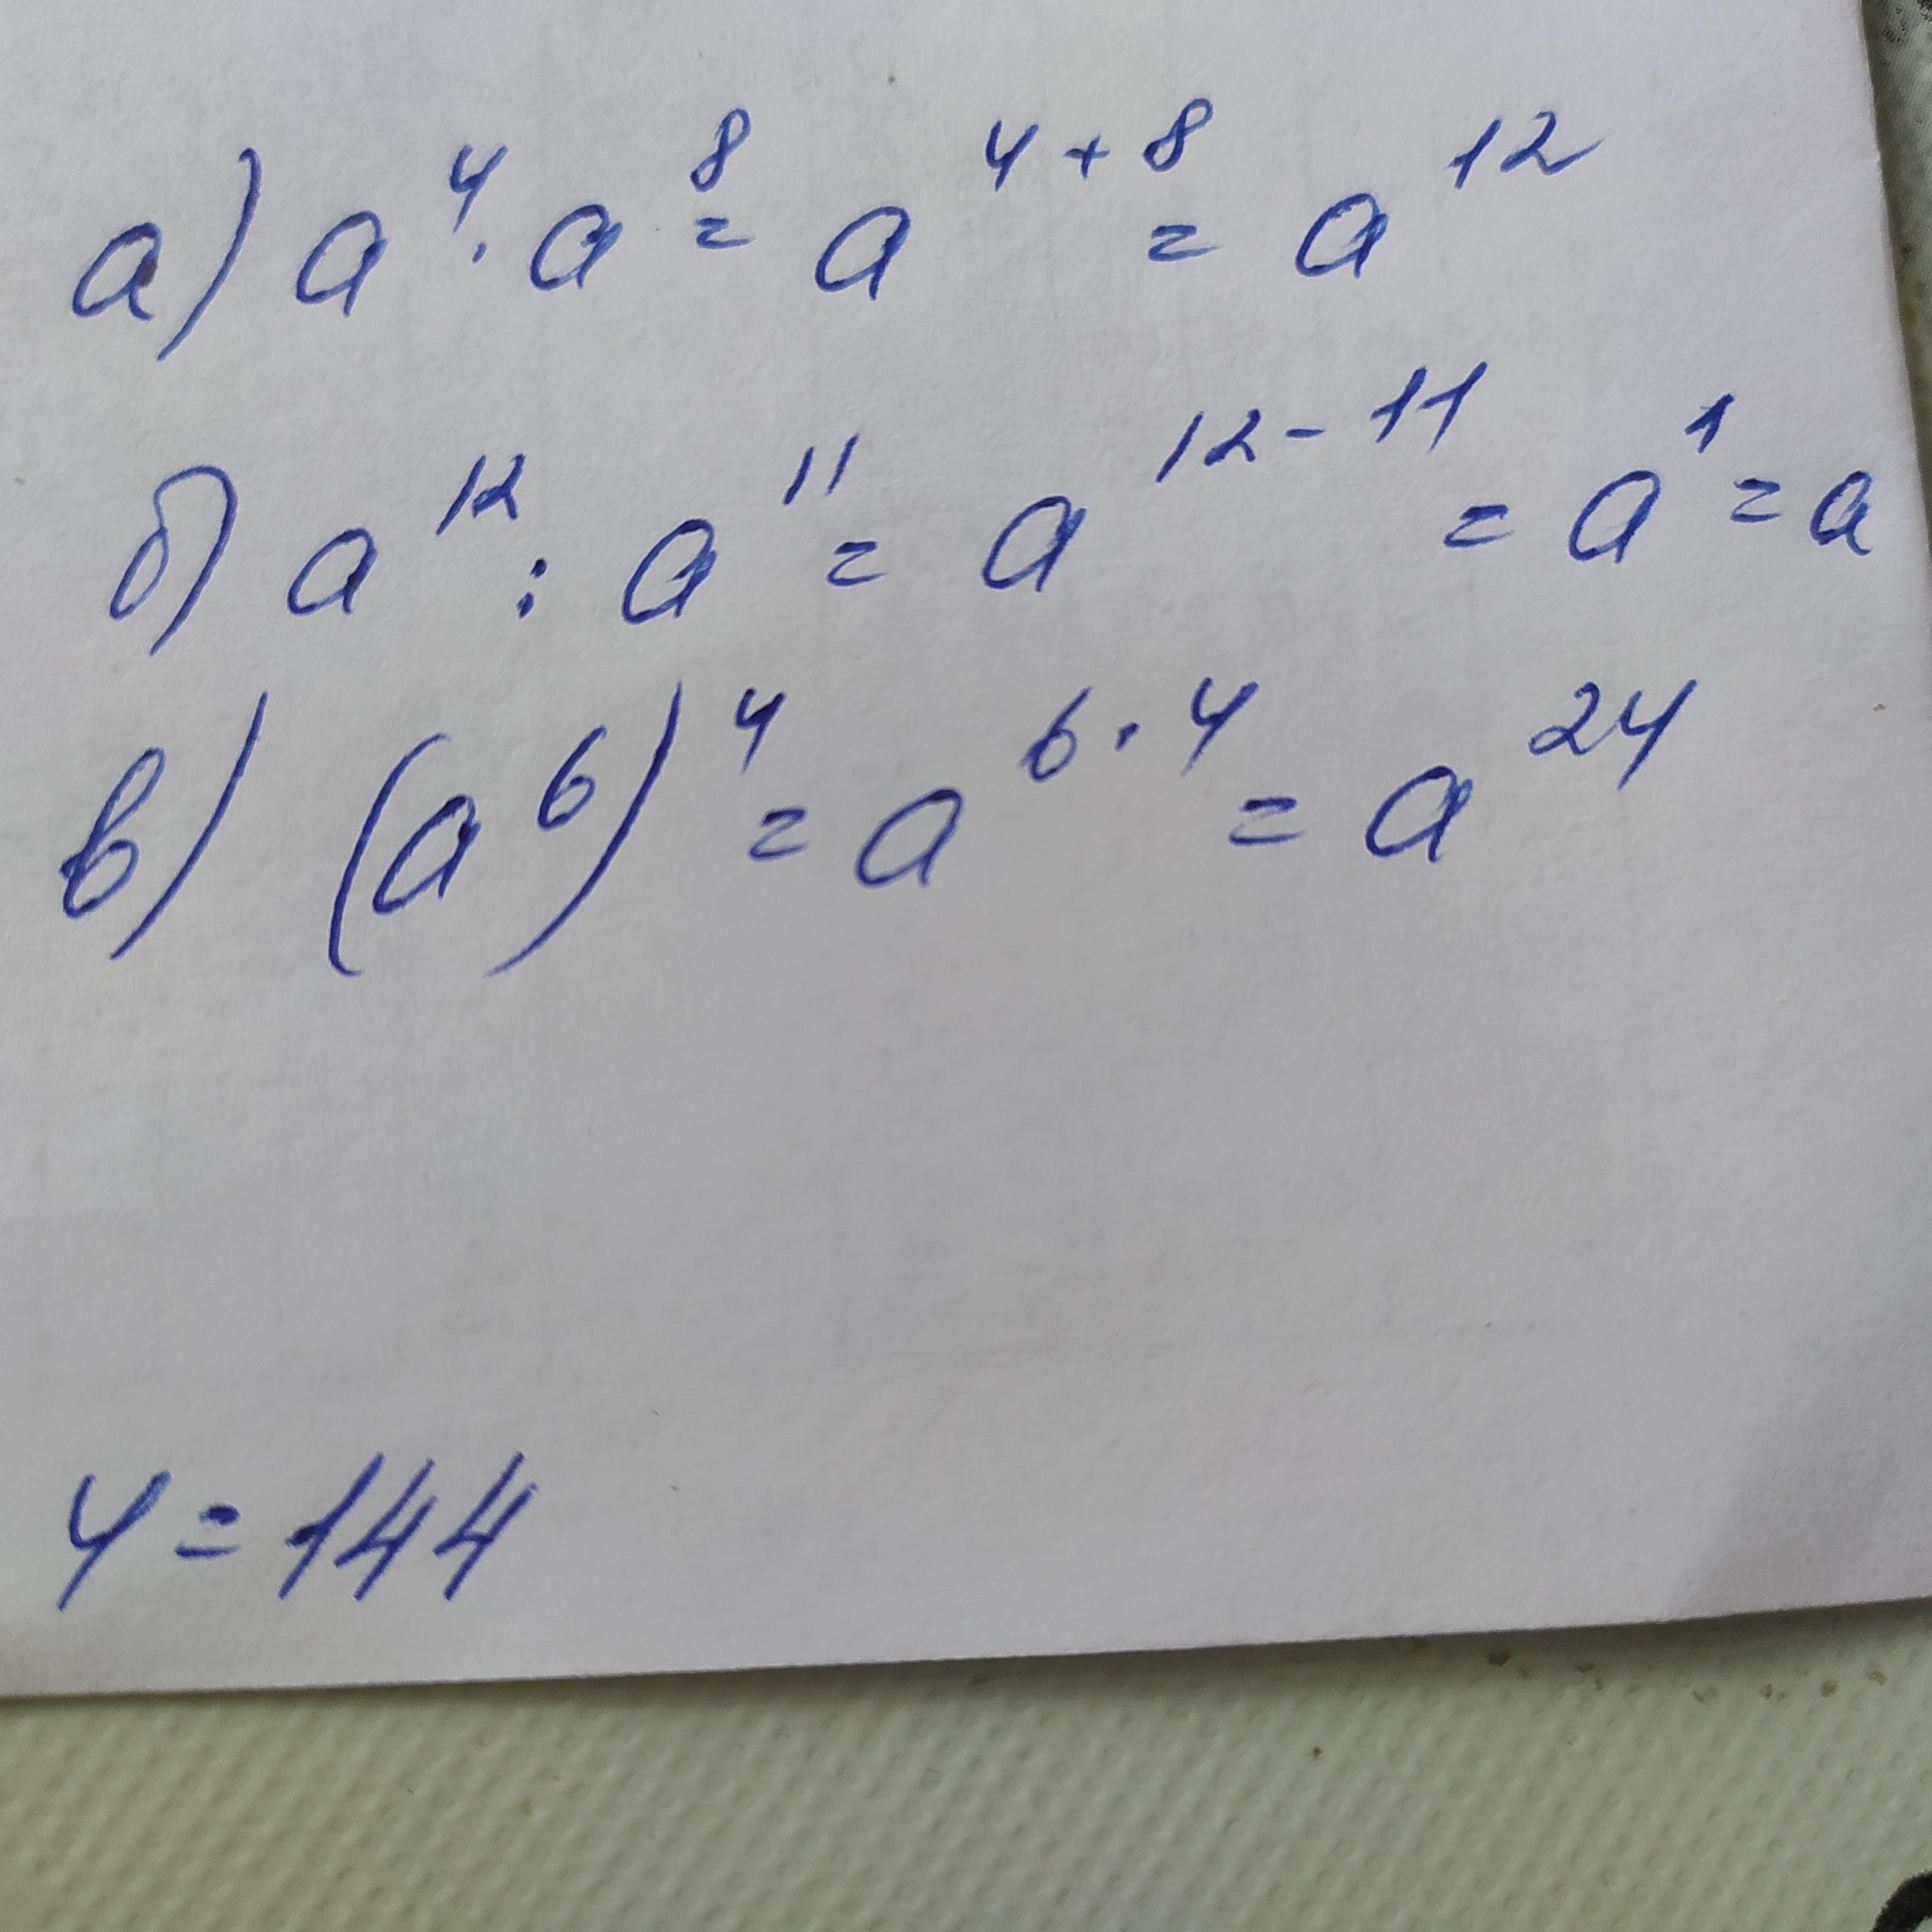 а) a⁴ · a⁸ = a⁴⁺⁸ = a¹²
б) a¹² : a¹¹ = a¹²⁻¹¹ = a¹ = a
в) (a⁶)⁴ = a⁶˙⁴ = a²⁴
y = 144